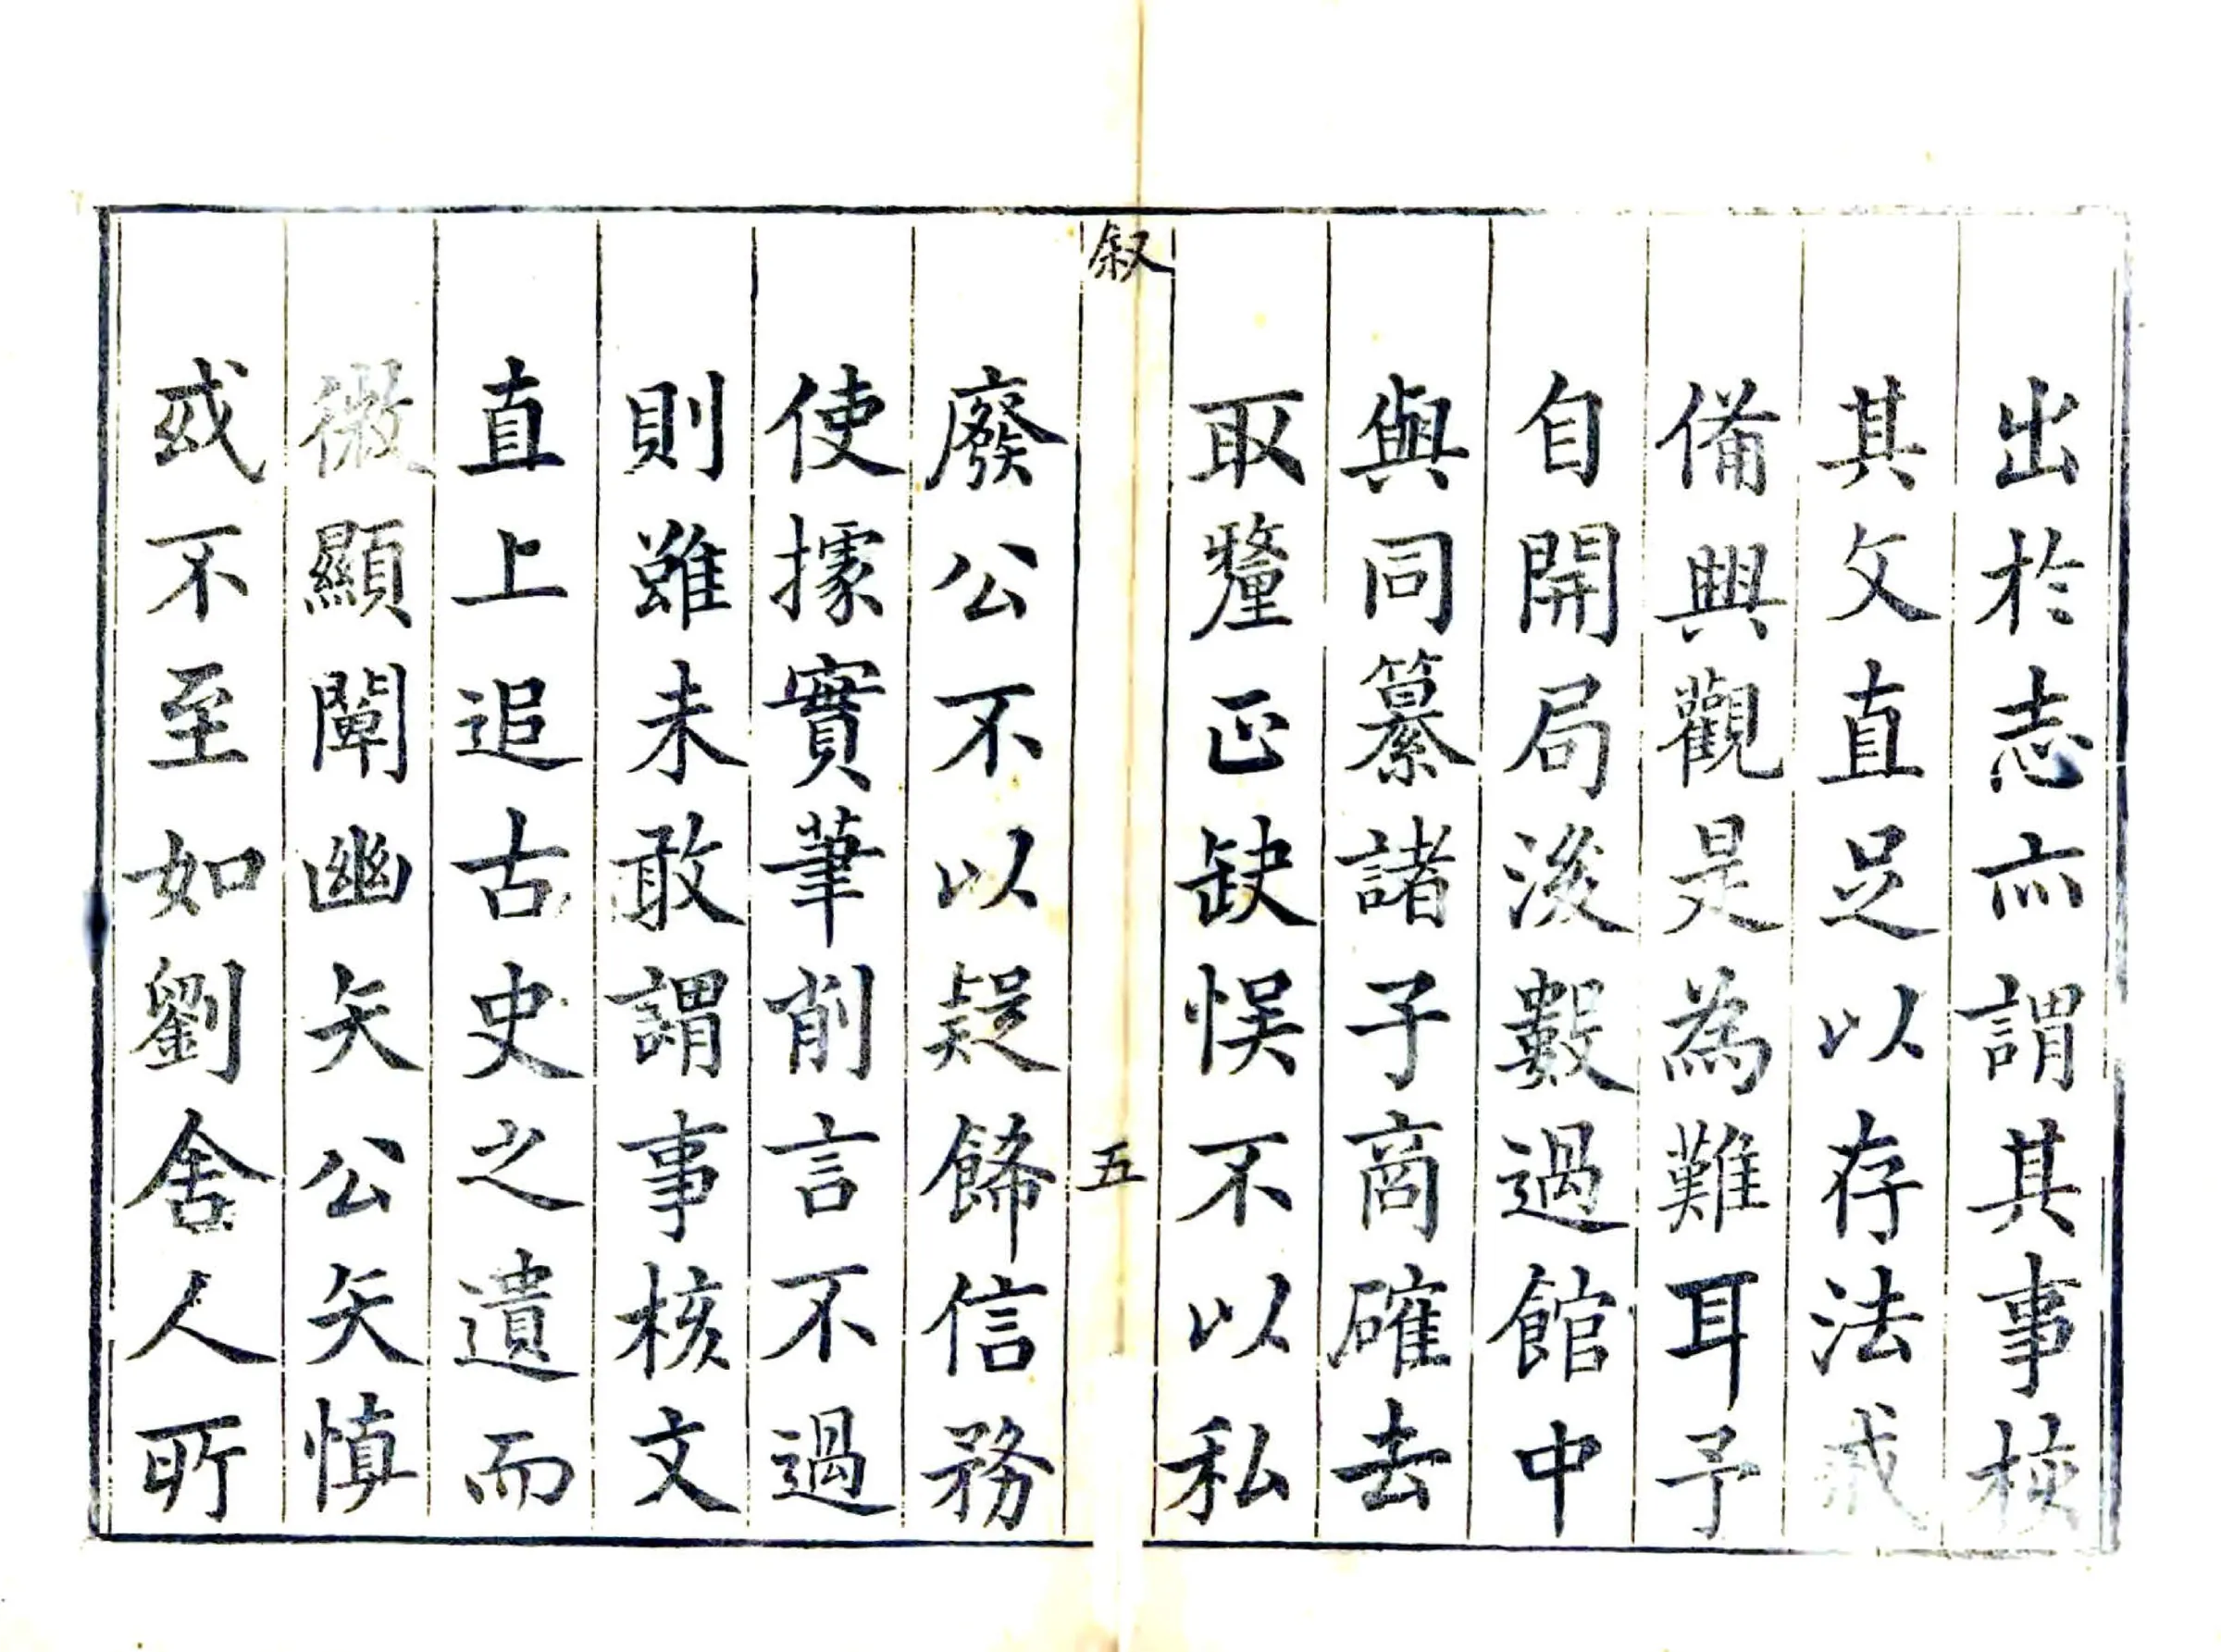 出於志亦謂其事核
其文直足以存法戒
備興觀是為難耳予
自開局後數過館中
與同纂諸子商確去
取釐正缺悮不以私
叙
五
廢公不以疑餙信務
使據實筆削言不過
則雖未敢謂事核文
直上追古史之遺而
微顯闡幽矢公矢慎
或不至如劉舍人所